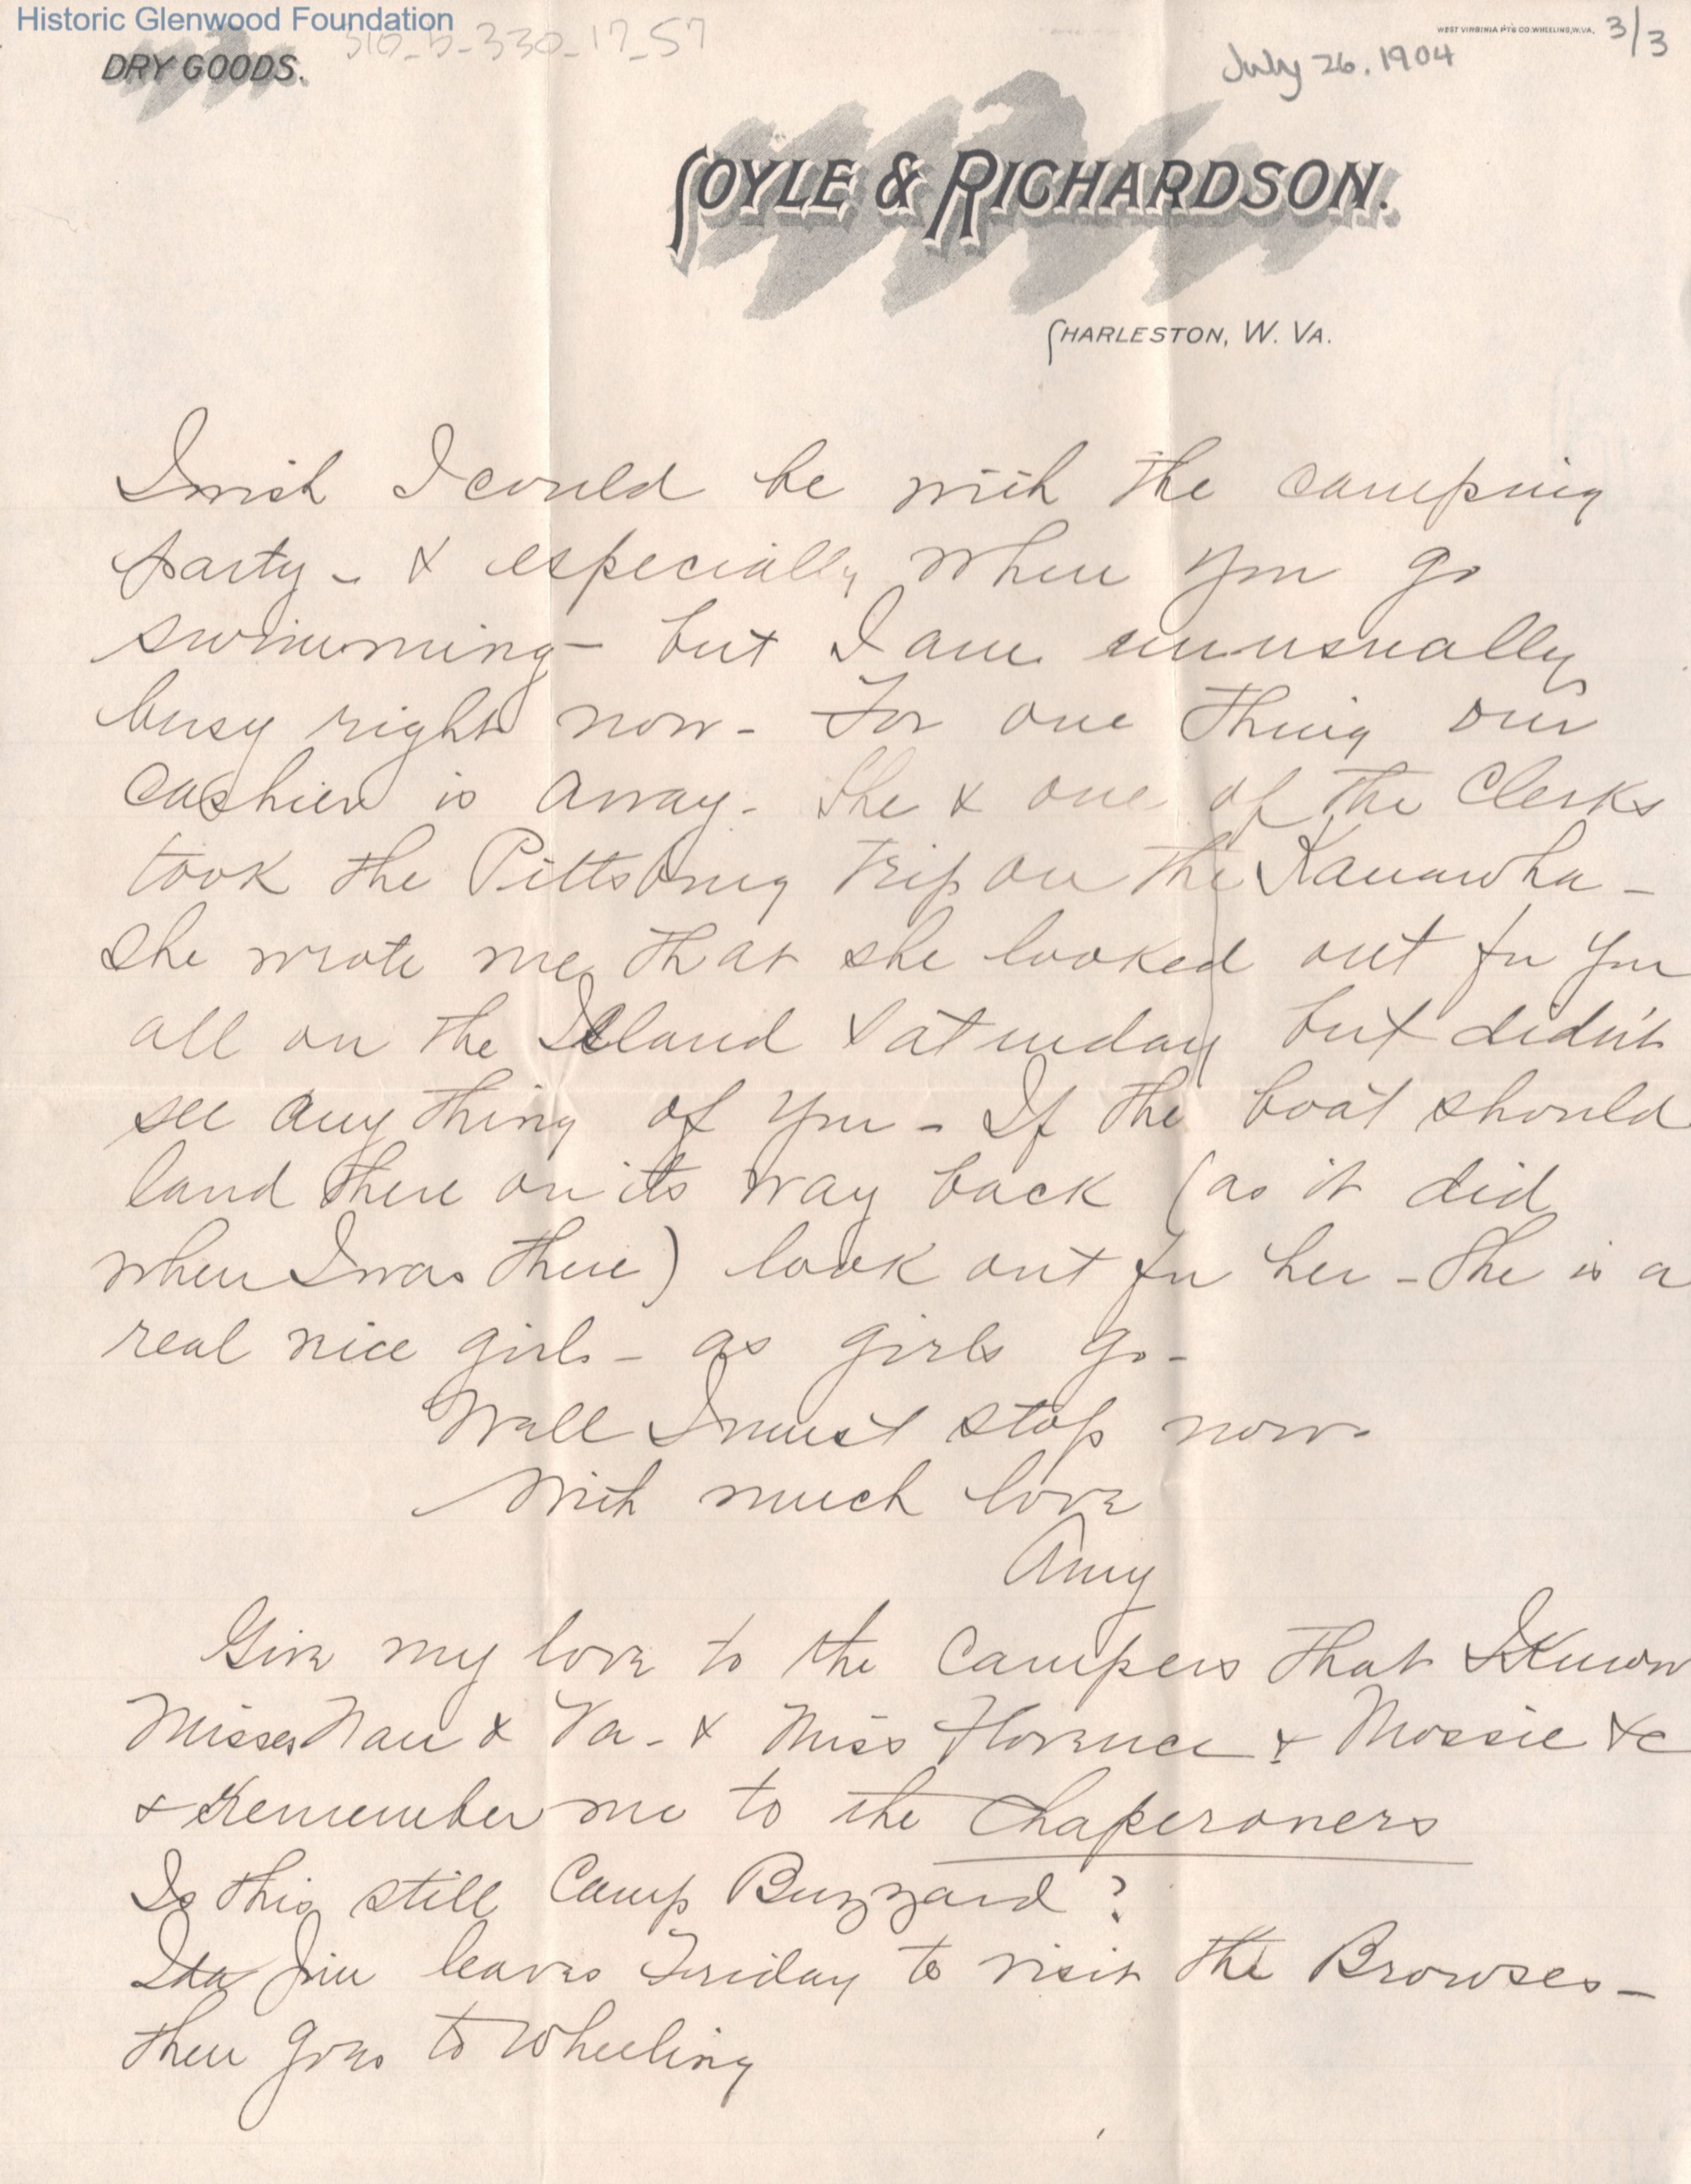 Historic Glenwood Foundation
316-5-330-17-57
WEST VIRGINIA PT'G CO. WHEELING, W. VA.
3/3
DRY GOODS.
July 26, 1904
COYLE & RICHARDSON.
CHARLESTON, W. VA.
I wish I could be with the camping
party - & especially when you go
swimming - but I am unusually
busy right now - For one thing our
cashier is away - She & one of the Clerks
took the Pittsburg trip on the Kanawha -
She wrote me that she looked out for you
all on the Island Saturday but didn't
see any thing of you - If the boat should
land there on its way back (as it did
when I was there) look out for her - She is a
real nice girl - as girls go -
Well I must stop now -
With much love
Amy
Give my love to the Campers that I know
Misses Nan & Va - & Miss Florence & Mossie &c
& Remember me to the Chaperoners
Is this still Camp Buzzard?
Ida Jim leaves Friday to visit the Browses -
then goes to Wheeling